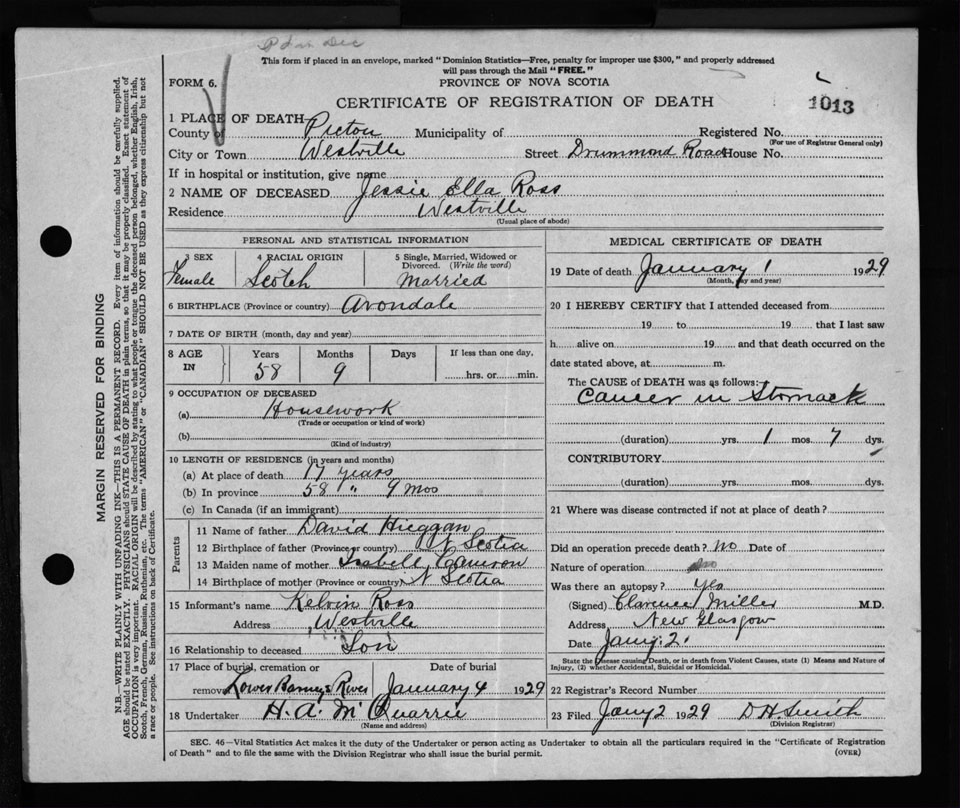 This form if placed in an envelope, marked "Dominion Statistics—Free, penalty for improper use $300," and properly addressed
will pass through the Mail "FREE."
FORM 6.
PROVINCE OF NOVA SCOTIA
CERTIFICATE OF REGISTRATION OF DEATH
1013
1 PLACE OF DEATH—
County of Pictou Municipality of Registered No.
(For use of Registrar General only)
City or Town Westville Street Drummond Road House No.
If in hospital or institution, give name
2 NAME OF DECEASED Jessie Ella Ross
Residence Westville
(Usual place of abode)
PERSONAL AND STATISTICAL INFORMATION
3 SEX 4 RACIAL ORIGIN 5 Single, Married, Widowed or
Divorced. (Write the word)
Female Scotch Married
6 BIRTHPLACE (Province or country) Avondale
7 DATE OF BIRTH (month, day and year)
8 AGE IN Years Months Days If less than one day,
58 9 hrs. or min.
9 OCCUPATION OF DECEASED
(a) Housework
(Trade or occupation or kind of work)
(b)
(Kind of industry)
10 LENGTH OF RESIDENCE (in years and months)
(a) At place of death 17 years
(b) In province 58 " 9 Mos
(c) In Canada (if an immigrant)
Parents
11 Name of father David
12 Birthplace of father (Province or country) N Scotia
13 Maiden name of mother Isabell Cameron
14 Birthplace of mother (Province or country) N Scotia
15 Informant's name Kelvin Ross
Address Westville
16 Relationship to deceased Son
17 Place of burial, cremation or Date of burial
removal Lower Barneys River January 4 1929
18 Undertaker H. A. McQuarrie
(Name and address)
MEDICAL CERTIFICATE OF DEATH
19 Date of death January 1 1929
(Month, day and year)
20 I HEREBY CERTIFY that I attended deceased from
19 to 19 that I last saw
h alive on 19 and that death occurred on the
date stated above, at m.
The CAUSE of DEATH was as follows:—
Cancer in Stomack
(duration) yrs. 1 mos. 7 dys.
CONTRIBUTORY
(duration) yrs. mos. dys.
21 Where was disease contracted if not at place of death?
Did an operation precede death? No Date of
Nature of operation
Was there an autopsy? Yes
(Signed) Clarence Miller M.D.
Address New Glasgow
Date Jany. 2.
State the Disease causing Death, or in death from Violent Causes, state (1) Means and Nature of
Injury, (2) whether Accidental, Suicidal or Homicidal.
22 Registrar's Record Number
23 Filed Jany 2 1929 D H. Smith
(Division Registrar)
SEC. 46—Vital Statistics Act makes it the duty of the Undertaker or person acting as Undertaker to obtain all the particulars required in the "Certificate of Registration
of Death" and to file the same with the Division Registrar who shall issue the burial permit. (OVER)
MARGIN RESERVED FOR BINDING
N.B.—WRITE PLAINLY WITH UNFADING INK—THIS IS A PERMANENT RECORD. Every item of information should be carefully supplied.
AGE should be stated EXACTLY. PHYSICIANS should STATE CAUSE OF DEATH in plain terms, so that it may be properly classified. Exact statement of
OCCUPATION is very important. RACIAL ORIGIN will be described by stating to what people or tongue the deceased person belonged, whether English, Irish,
Scotch, French, German, Russian, Ruthenian, etc. The terms "AMERICAN" or "CANADIAN" SHOULD NOT BE USED as they express citizenship but not
a race or people. See instructions on back of Certificate.